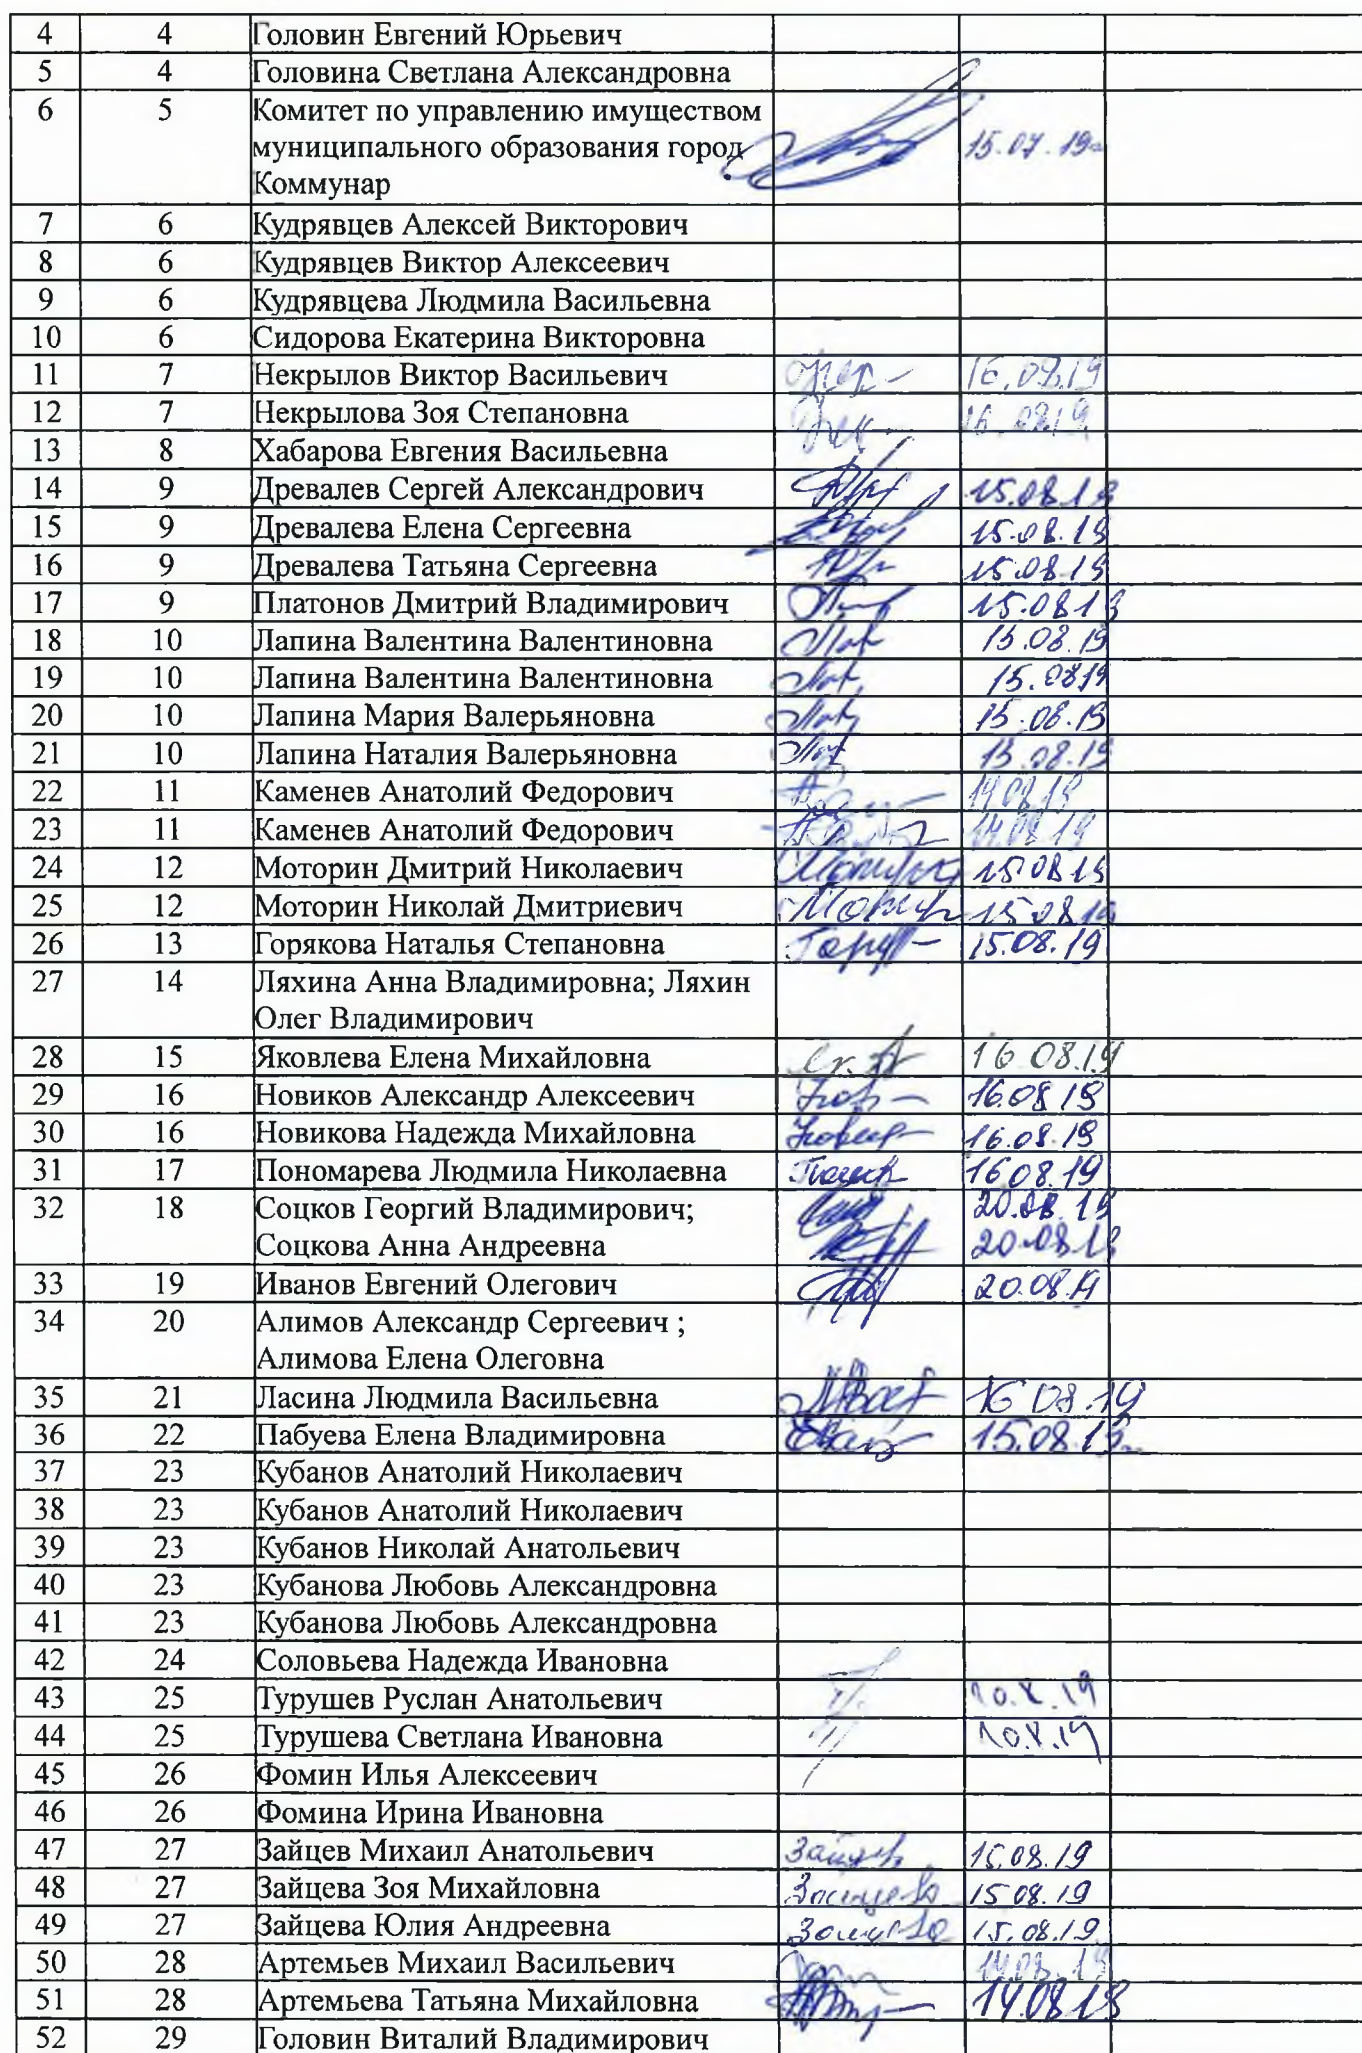 4 4 Головин Евгений Юрьевич
5 4 Головина Светлана Александровна
6 5 Комитет по управлению имуществом
муниципального образования город 15.07.19
Коммунар
7 6 Кудрявцев Алексей Викторович
8 6 Кудрявцев Виктор Алексеевич
9 6 Кудрявцева Людмила Васильевна
10 6 Сидорова Екатерина Викторовна
11 7 Некрылов Виктор Васильевич 16.08.19
12 7 Некрылова Зоя Степановна 16.08.19
13 8 Хабарова Евгения Васильевна
14 9 Древалев Сергей Александрович 15.08.19
15 9 Древалева Елена Сергеевна 15.08.19
16 9 Древалева Татьяна Сергеевна 15.08.19
17 9 Платонов Дмитрий Владимирович 15.08.19
18 10 Лапина Валентина Валентиновна 15.08.19
19 10 Лапина Валентина Валентиновна 15.08.19
20 10 Лапина Мария Валерьяновна 15.08.19
21 10 Лапина Наталия Валерьяновна 15.08.19
22 11 Каменев Анатолий Федорович 14.08.19
23 11 Каменев Анатолий Федорович 14.08.19
24 12 Моторин Дмитрий Николаевич 15.08.19
25 12 Моторин Николай Дмитриевич 15.08.19
26 13 Горякова Наталья Степановна 15.08.19
27 14 Ляхина Анна Владимировна; Ляхин
Олег Владимирович
28 15 Яковлева Елена Михайловна 16.08.19
29 16 Новиков Александр Алексеевич 16.08.19
30 16 Новикова Надежда Михайловна 16.08.19
31 17 Пономарева Людмила Николаевна 16.08.19
32 18 Соцков Георгий Владимирович; 20.08.19
Соцкова Анна Андреевна 20.08.19
33 19 Иванов Евгений Олегович 20.08.19
34 20 Алимов Александр Сергеевич ;
Алимова Елена Олеговна
35 21 Ласина Людмила Васильевна 16.08.19
36 22 Пабуева Елена Владимировна 15.08.19
37 23 Кубанов Анатолий Николаевич
38 23 Кубанов Анатолий Николаевич
39 23 Кубанов Николай Анатольевич
40 23 Кубанова Любовь Александровна
41 23 Кубанова Любовь Александровна
42 24 Соловьева Надежда Ивановна
43 25 Турушев Руслан Анатольевич 10.8.19
44 25 Турушева Светлана Ивановна 10.8.19
45 26 Фомин Илья Алексеевич
46 26 Фомина Ирина Ивановна
47 27 Зайцев Михаил Анатольевич Зайцев 15.08.19
48 27 Зайцева Зоя Михайловна Зайцева 15.08.19
49 27 Зайцева Юлия Андреевна 15.08.19
50 28 Артемьев Михаил Васильевич 14.08.19
51 28 Артемьева Татьяна Михайловна 14.08.19
52 29 Головин Виталий Владимирович